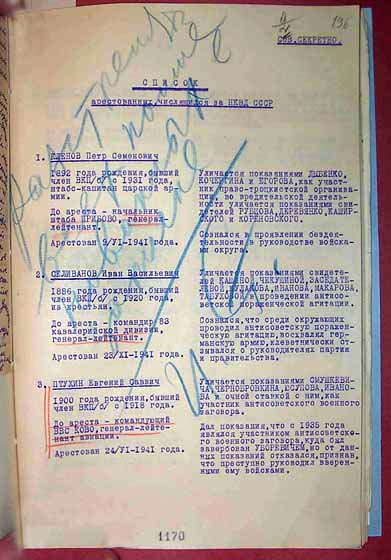 196
Сов.СЕКРЕТНО.
СПИСОК
арестованных, числящихся за НКВД СССР
1. КЛЕНОВ Петр Семенович
1892 года рождения, бывший
член ВКП/б/ с 1931 года,
штабс-капитан царской ар-
мии.
До ареста - начальник
штаба ПРИБОВО, генерал-
лейтенант.
Арестован 9/VI-1941 года.
Уличается показаниями
КОЧЕРГИНА и ЕГОРОВА, как учас-
тник право-троцкистской организа-
ции, во вредительской деятель-
ности уличается показаниями сви-
детелей РУБЦОВА, ДЕРЕВЯНКО, КАШИР-
СКОГО и КОРЕНОВСКОГО.
Сознался в проявлении бездея-
тельности в руководстве войсками
округа.
2. СЕЛИВАНОВ Иван Васильевич
1886 года рождения, бывший
член ВКП/б/ с 1920 года,
из крестьян.
До ареста - командир 83
кавалерийской дивизии,
генерал-лейтенант.
Арестован 23/XI-1941 года.
Уличается показаниями свидете-
лей
ИВАНОВА, МАКАРОВА,
в проведении антисо-
ветской пораженческой агитации.
Сознался, что среди окружающих
проводил антисоветскую поражен-
ческую агитацию, восхвалял гер-
манскую армию, клеветнически от-
зывался о руководителях партии
и правительства.
3. ПТУХИН Евгений Саввич
1900 года рождения, бывший
член ВКП/б/ с 1918 года.
До ареста - командующий
ВВС КОВО, генерал-лейте-
нант авиации.
Арестован 24/VI-1941 года.
Уличается показаниями СМУШКЕВИ-
ЧА, ЧЕРНОБРОВКИНА, ЮСУПОВА, ИВАНО-
ВА и очной ставкой с ним, как
участник антисоветского военного
заговора.
Дал показания, что с 1935 года
являлся участником антисоветско-
го военного заговора, куда был
завербован УБОРЕВИЧЕМ, но от дан-
ных показаний отказался, признав,
что преступно руководил вверен-
ными ему войсками.
1170